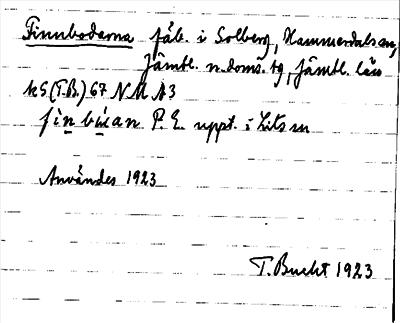 Finnbodarna fäb. i Solberg, Hammerdals sn,
Jämtl. n. doms. tg, Jämtl. län
kS (T.B.) 67 NV A3
fin búan P. E. uppt. i Lits sn
Användes 1923
T. Bucht 1923